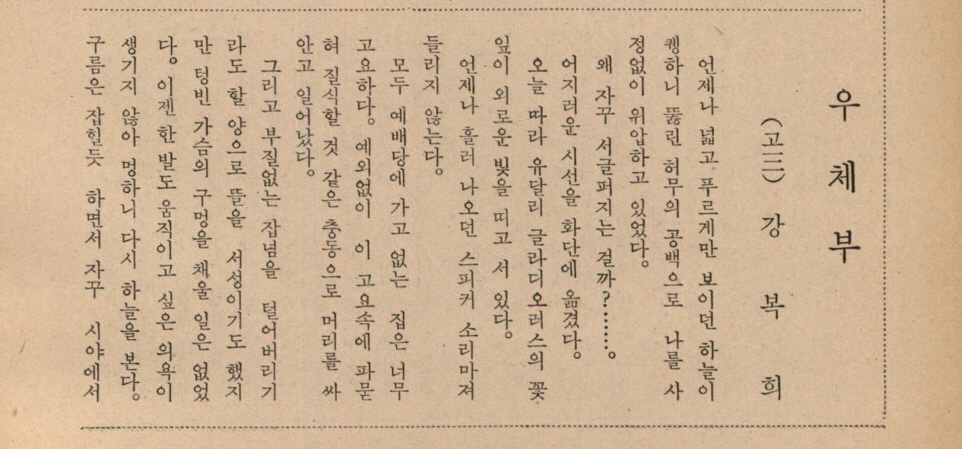 우체부
(고三) 강복희
언제나 넓고 푸르게만 보이던 하늘이
퀭하니 뚫린 허무의 공백으로 나를 사
정없이 위압하고 있었다.
왜 자꾸 서글퍼지는 걸까?……。
어지러운 시선을 화단에 옮겼다.
오늘 따라 유달리 글라디오러스의 꽃
잎이 외로운 빛을 띠고 서 있다.
언제나 흘러 나오던 스피커 소리마져
들리지 않는다.
모두 예배당에 가고 없는 집은 너무
고요하다. 예외없이 이 고요속에 파묻
혀 질식할 것 같은 충동으로 머리를 싸
안고 일어났다.
그리고 부질없는 잡념을 털어버리기
라도 할 양으로 뜰을 서성이기도 했지
만 텅빈 가슴의 구멍을 채울 일은 없었
다. 이젠 한 발도 움직이고 싶은 의욕이
생기지 않아 멍하니 다시 하늘을 본다.
구름은 잡힐듯 하면서 자꾸 시야에서